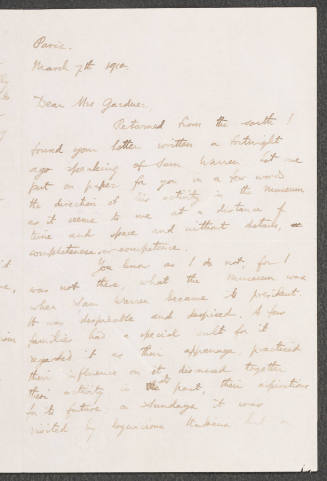 Paris.
March 7th 1910
Dear Mrs Gardner.
Returned from the south I
found your letter written a fortnight
ago speaking of Sam Warren. Let me
put on paper for you in a few words
the direction of his activity in the museum
as it seems to me at a distance of
time and space and without details,
completeness or competence.
You know as I do not, for I
was not there, what the museum was
when Sam Warren became its president.
It was despicable and despised. A few
families had a special cult for it
regarded it as their appanage, practiced
their influence on it, discussed together
their activity in the past, their aspirations
for its future. On Sundays it was
visited by